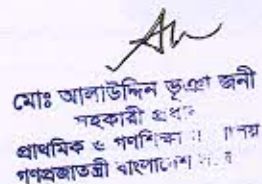 মোঃ আলাউদ্দিন ভূঞা জনী
সহকারী
প্রাথমিক ও গণশিক্ষা
গণপ্রজাতন্ত্রী বাংলাদেশ